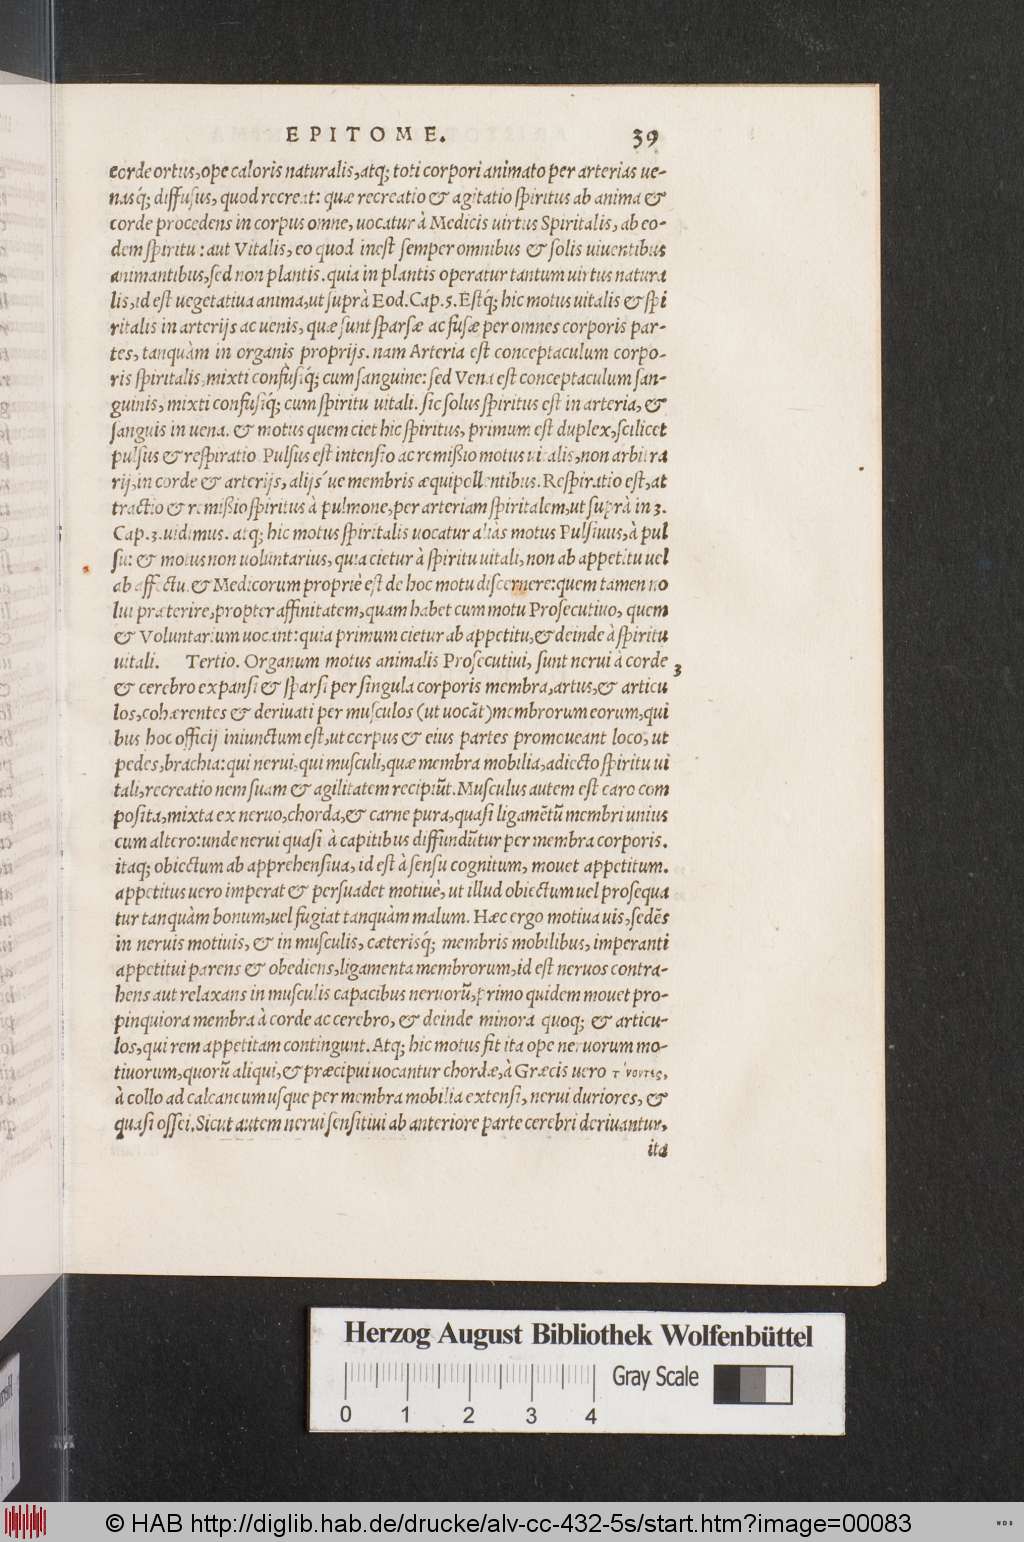 EPITOME. 39
corde ortus, ope caloris naturalis, atq; toti corpori animato per arterias ue-
nasq́; diffusus, quod recreat: quæ recreatio & agitatio spiritus ab anima &
corde procedens in corpus omne, uocatur à Medicis uirtus Spiritalis, ab eo-
dem spiritu: aut Vitalis, eo quod inest semper omnibus & solis uiuentibus
animantibus, sed non plantis. quia in plantis operatur tantum uirtus natura
lis, id est uegetatiua anima, ut suprà Eod. Cap. 5. Estq́; hic motus uitalis & spi
ritalis in arterijs ac uenis, quæ sunt sparsæ ac fusæ per omnes corporis par-
tes, tanquàm in organis proprijs. nam Arteria est conceptaculum corpo-
ris spiritalis, mixti confusiq́; cum sanguine: sed Vena est conceptaculum san-
guinis, mixti confusiq́; cum spiritu uitali. sic solus spiritus est in arteria, &
sanguis in uena. & motus quem ciet hic spiritus, primum est duplex, scilicet
pulsus & respiratio. Pulsus est intensio ac remißio motus uitalis, non arbitra
rij, in corde & arterijs, alijs´ue membris æquipollentibus. Respiratio est, at
tractio & remißio spiritus à pulmone, per arteriam spiritalem, ut suprà in 3.
Cap. 3. uidimus. atq; hic motus spiritalis uocatur aliàs motus Pulsiuus, à pul
su: & motus non uoluntarius, quia cietur à spiritu uitali, non ab appetitu uel
ab affectu. & Medicorum propriè est de hoc motu discernere: quem tamen no
lui præterire, propter affinitatem, quam habet cum motu Prosecutiuo, quem
& Voluntarium uocant: quia primum cietur ab appetitu, & deinde à spiritu
uitali. Tertio. Organum motus animalis Prosecutiui, sunt nerui à corde 3
& cerebro expansi & sparsi per singula corporis membra, artus, & articu
los, cohærentes & deriuati per musculos (ut uocãt) membrorum eorum, qui
bus hoc officij iniunctum est, ut corpus & eius partes promoueant loco, ut
pedes, brachia: qui nerui, qui musculi, quæ membra mobilia, adiecto spiritu ui
tali, recreationem suam & agilitatem recipiũt. Musculus autem est caro com
posita, mixta ex neruo, chorda, & carne pura, quasi ligamẽtũ membri unius
cum altero: unde nerui quasi à capitibus diffundũtur per membra corporis.
itaq; obiectum ab apprehensiua, id est à sensu cognitum, mouet appetitum.
appetitus uero imperat & persuadet motiuè, ut illud obiectum uel prosequa
tur tanquàm bonum, uel fugiat tanquàm malum. Hæc ergo motiua uis, sedẽs
in neruis motiuis, & in musculis, cæterisq́; membris mobilibus, imperanti
appetitui parens & obediens, ligamenta membrorum, id est neruos contra-
hens aut relaxans in musculis capacibus neruorũ, primo quidem mouet pro-
pinquiora membra à corde ac cerebro, & deinde minora quoq; & articu-
los, qui rem appetitam contingunt. Atq; hic motus fit ita ope neruorum mo-
tiuorum, quorũ aliqui, & præcipui uocantur chordæ, à Græcis uero τένοντες,
à collo ad calcaneum usque per membra mobilia extensi, nerui duriores, &
quasi ossei. Sicut autem nerui sensitiui ab anteriore parte cerebri deriuantur,
ita
Herzog August Bibliothek Wolfenbüttel
Gray Scale
0 1 2 3 4
© HAB http://diglib.hab.de/drucke/alv-cc-432-5s/start.htm?image=00083